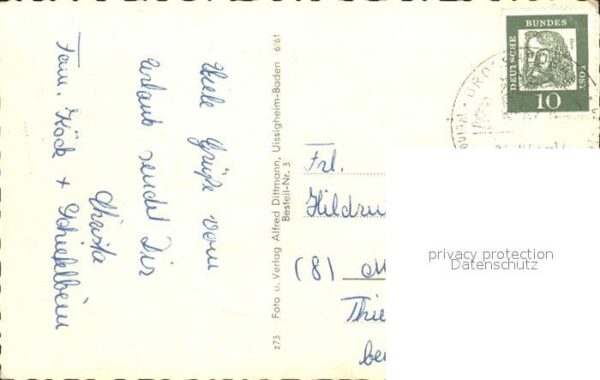 Viele Grüße vom
Urlaub sendet Dir
Christa
Fam. Köck + Schiefelbein
z73 Foto u. Verlag Alfred Dittmann, Uissigheim-Baden 6/61
Bestell-Nr. 3
DEUTSCHE
BUNDES
POST
10
Frl.
Hildru
(8)
Thie
be
privacy protection
Datenschutz